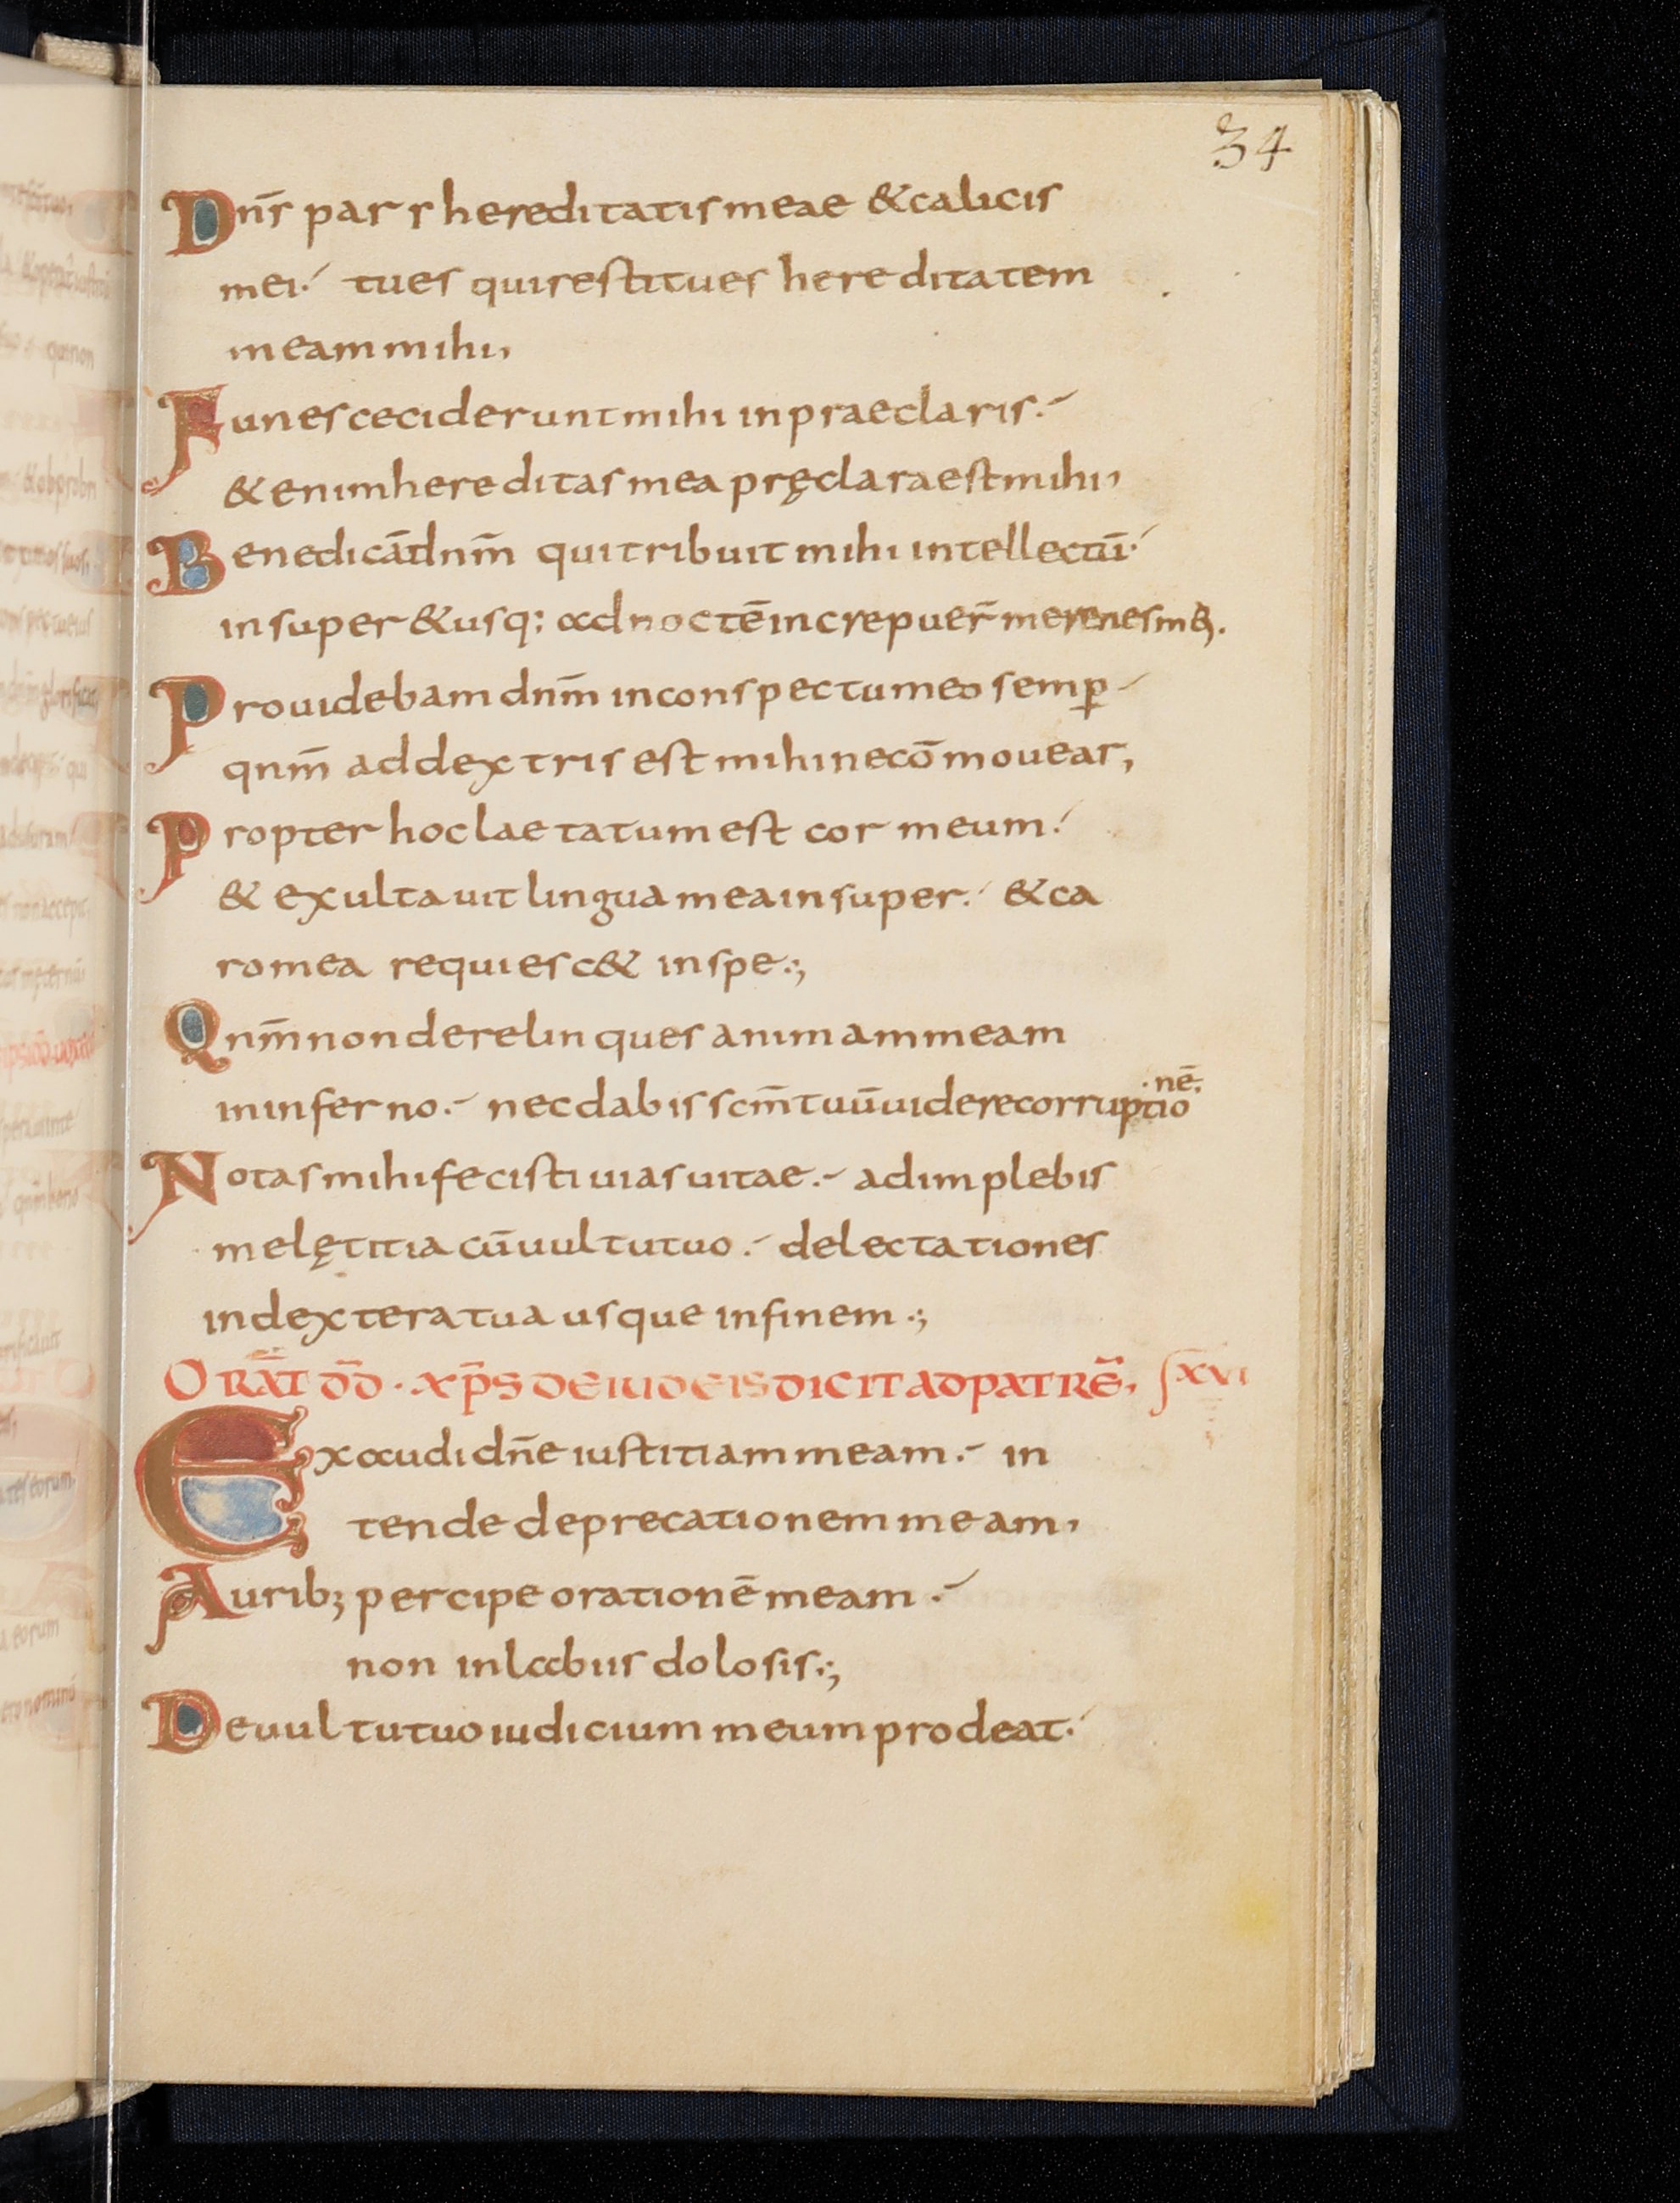 34
Dn̄s pars hereditatis meae & calicis
mei. tu es qui restitues hereditatem
meam mihi,
Funes ceciderunt mihi in praeclaris.
& enim hereditas mea pręclara est mihi,
Benedicā dnm̄ qui tribuit mihi intellectū.
insuper & usq; ad noctē increpuer̄ me renes m&.
Prouidebam dnm̄ in conspectu meo semꝑ
qnm̄ ad dextris est mihi ne cō mouear,
Propter hoc laetatum est cor meum.
& exultauit lingua mea insuper. & ca
ro mea requiesc& in spe.;
Qnm̄ non derelinques animam meam
in inferno. nec dabis scm̄ tuū uidere corruptio
nē.
Notas mihi fecisti uias uitae. adimplebis
me lętitia cū uultu tuo. delectationes
in dextera tua usque in finem.;
ORAT̄ D̄D · XP̄S DE IUDEIS DICIT AD PATRĒ, XVI
Exaudi dn̄e iustitiam meam. in
tende deprecationem meam,
Aurib; percipe orationē meam.
non in labiis dolosis.;
De uultu tuo iudicium meum prodeat.